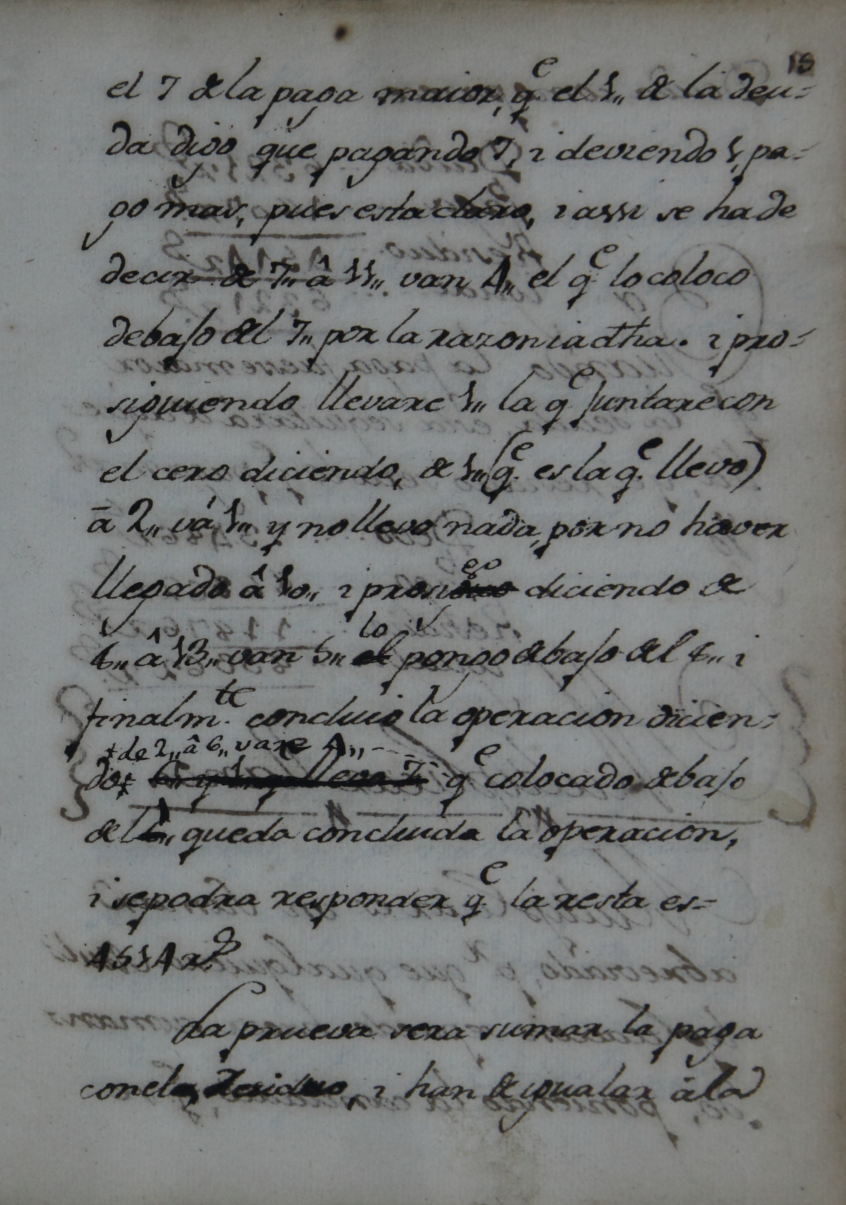 15
el 7 de la paga maior, q^e el 1,, de la deu=
da digo que pagando 7, i deviendo 1, pa-
go mas, pues esta claro, i assi se ha de
decir de 7,, â 11,, van 4,, el q^e lo coloco
debajo del 7,, por la razon ia dha. i pro=
siguiendo llevare 1,, la q^e juntare con
el cero diciendo, de 1,, (q^e. es la q^e. llevo)
â 2,, vá 1,, y no llevo nada, por no haver
llegado â 10,, i prosigo diciendo de
8,, â 13,, van 5,, lo pongo debajo del 8,, i
finalm.^te concluio la operacion dicien=
+ de 2,, â 6,, vare 4,,
do+ q^e colocado debajo
del 2,, queda concluida la operacion,
i se podra responder q^e la resta es=
4514 r^s.
La prueva sera sumar la paga
con el Residuo, i han de igualar â la